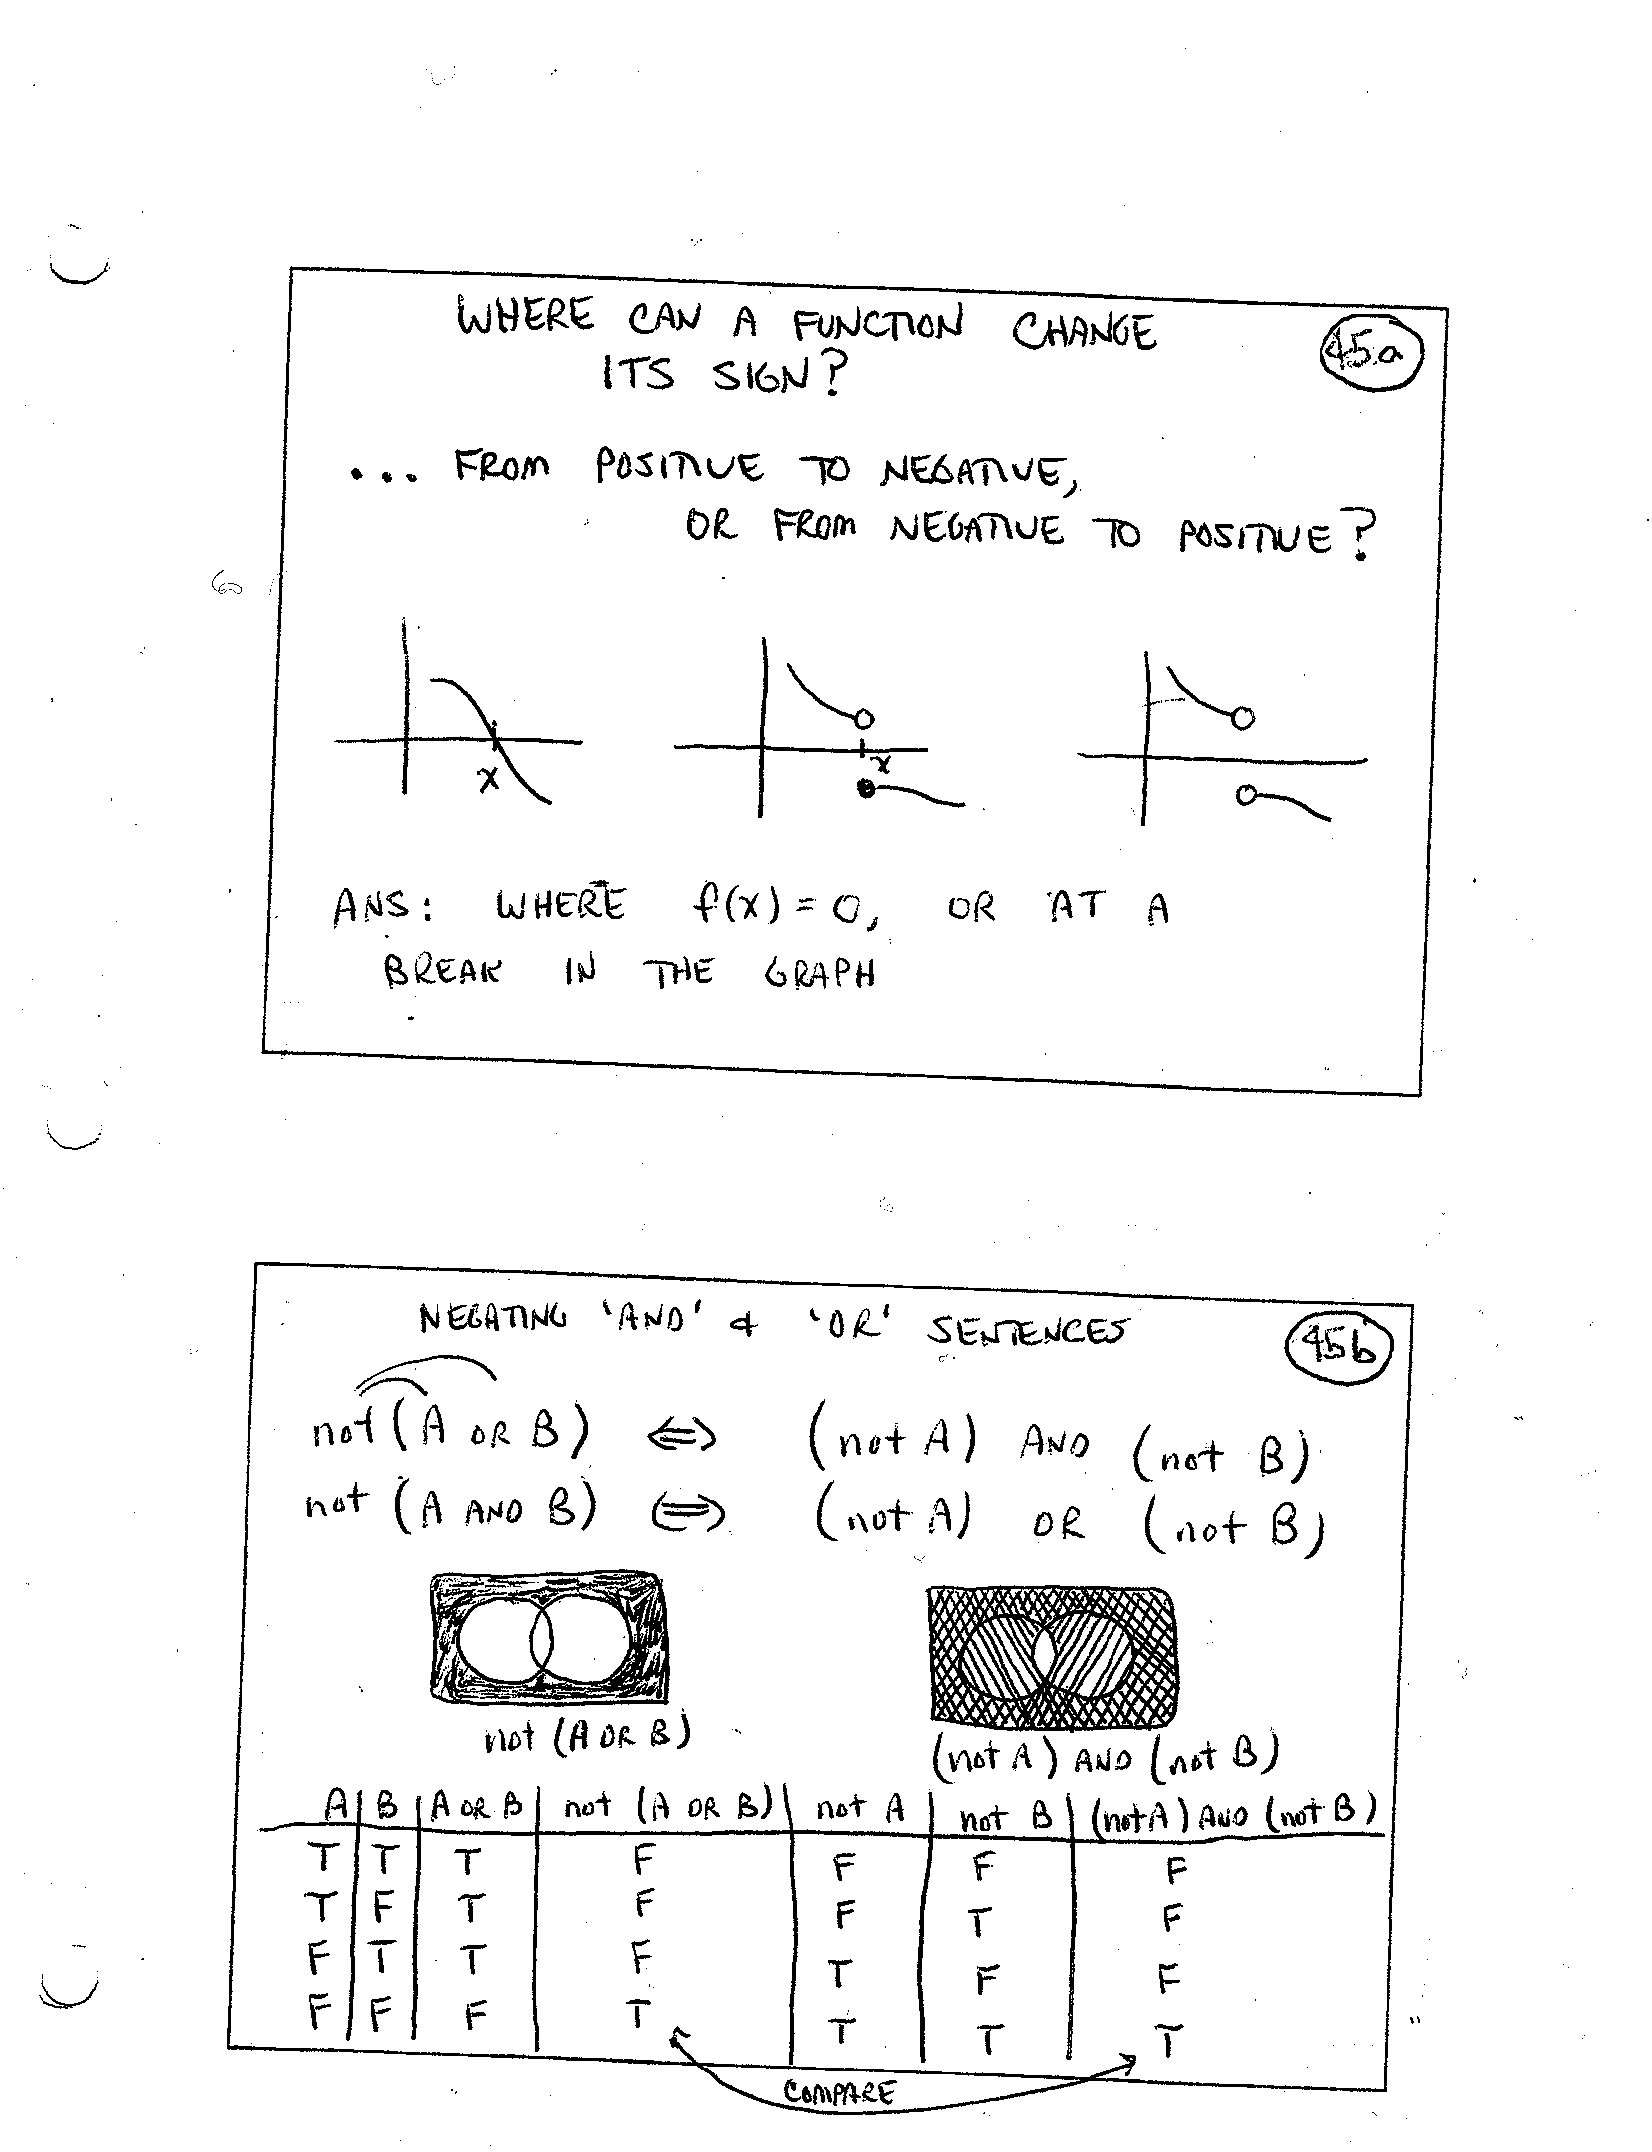 WHERE CAN A FUNCTION CHANGE
ITS SIGN?
45a
... FROM POSITIVE TO NEGATIVE,
OR FROM NEGATIVE TO POSITIVE?
x
x
ANS: WHERE f(x) = 0, OR AT A
BREAK IN THE GRAPH
NEGATING 'AND' & 'OR' SENTENCES
45b
not (A OR B) ⇔ (not A) AND (not B)
not (A AND B) ⇔ (not A) OR (not B)
not (A OR B)
(not A) AND (not B)
A B A OR B not (A OR B) not A not B (not A) AND (not B)
T T T F F F F
T F T F F T F
F T T F T F F
F F F T T T T
COMPARE